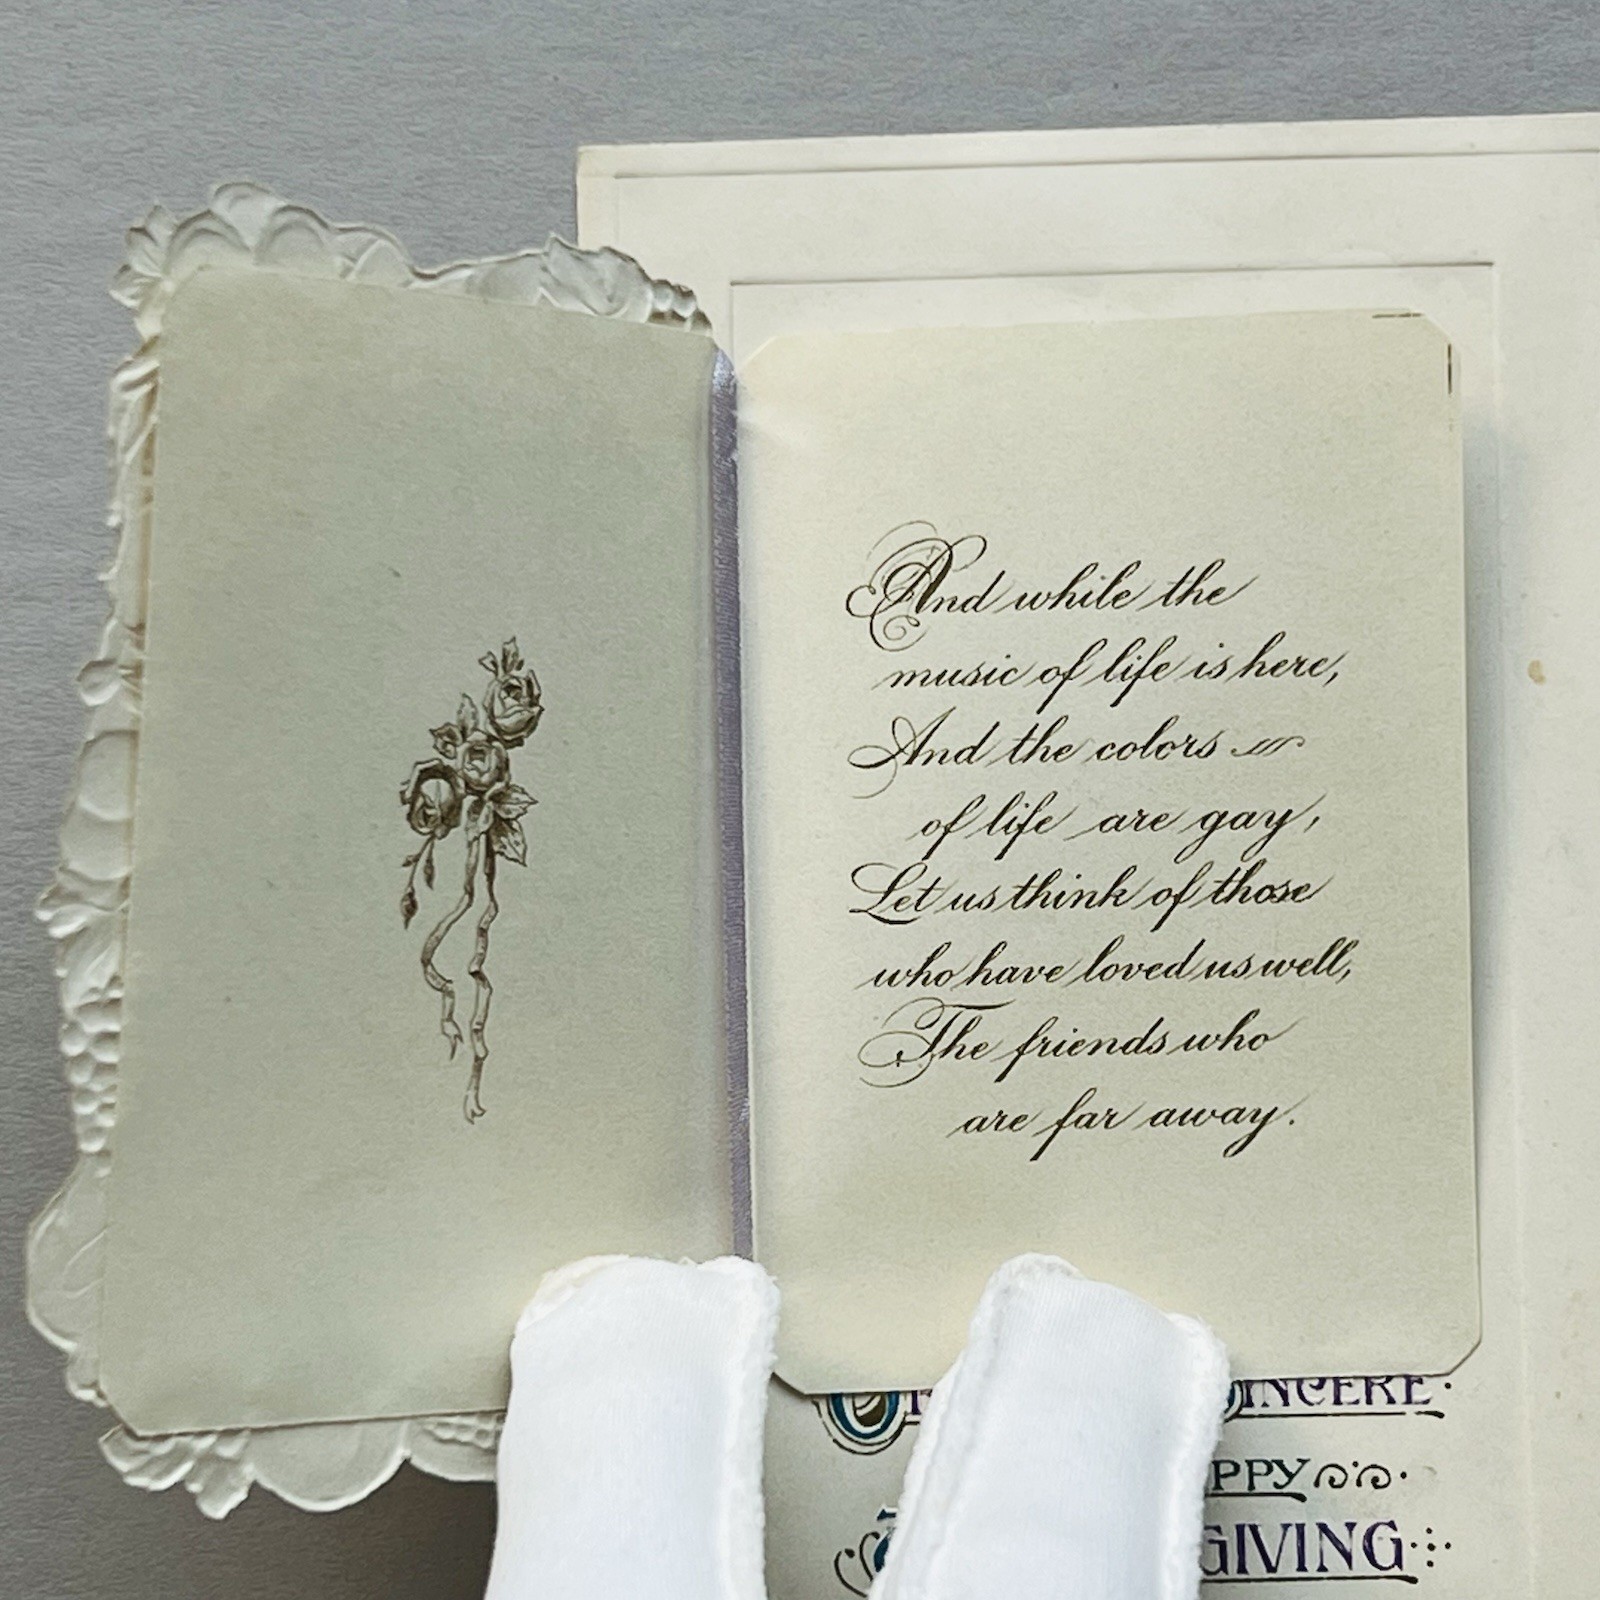 And while the
music of life is here,
And the colors
of life are gay,
Let us think of those
who have loved us well,
The friends who
are far away.